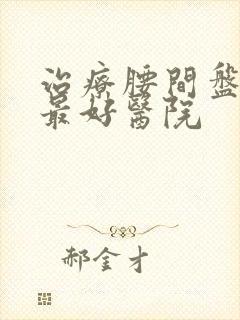 治療腰間盤
最好醫院
郝金才